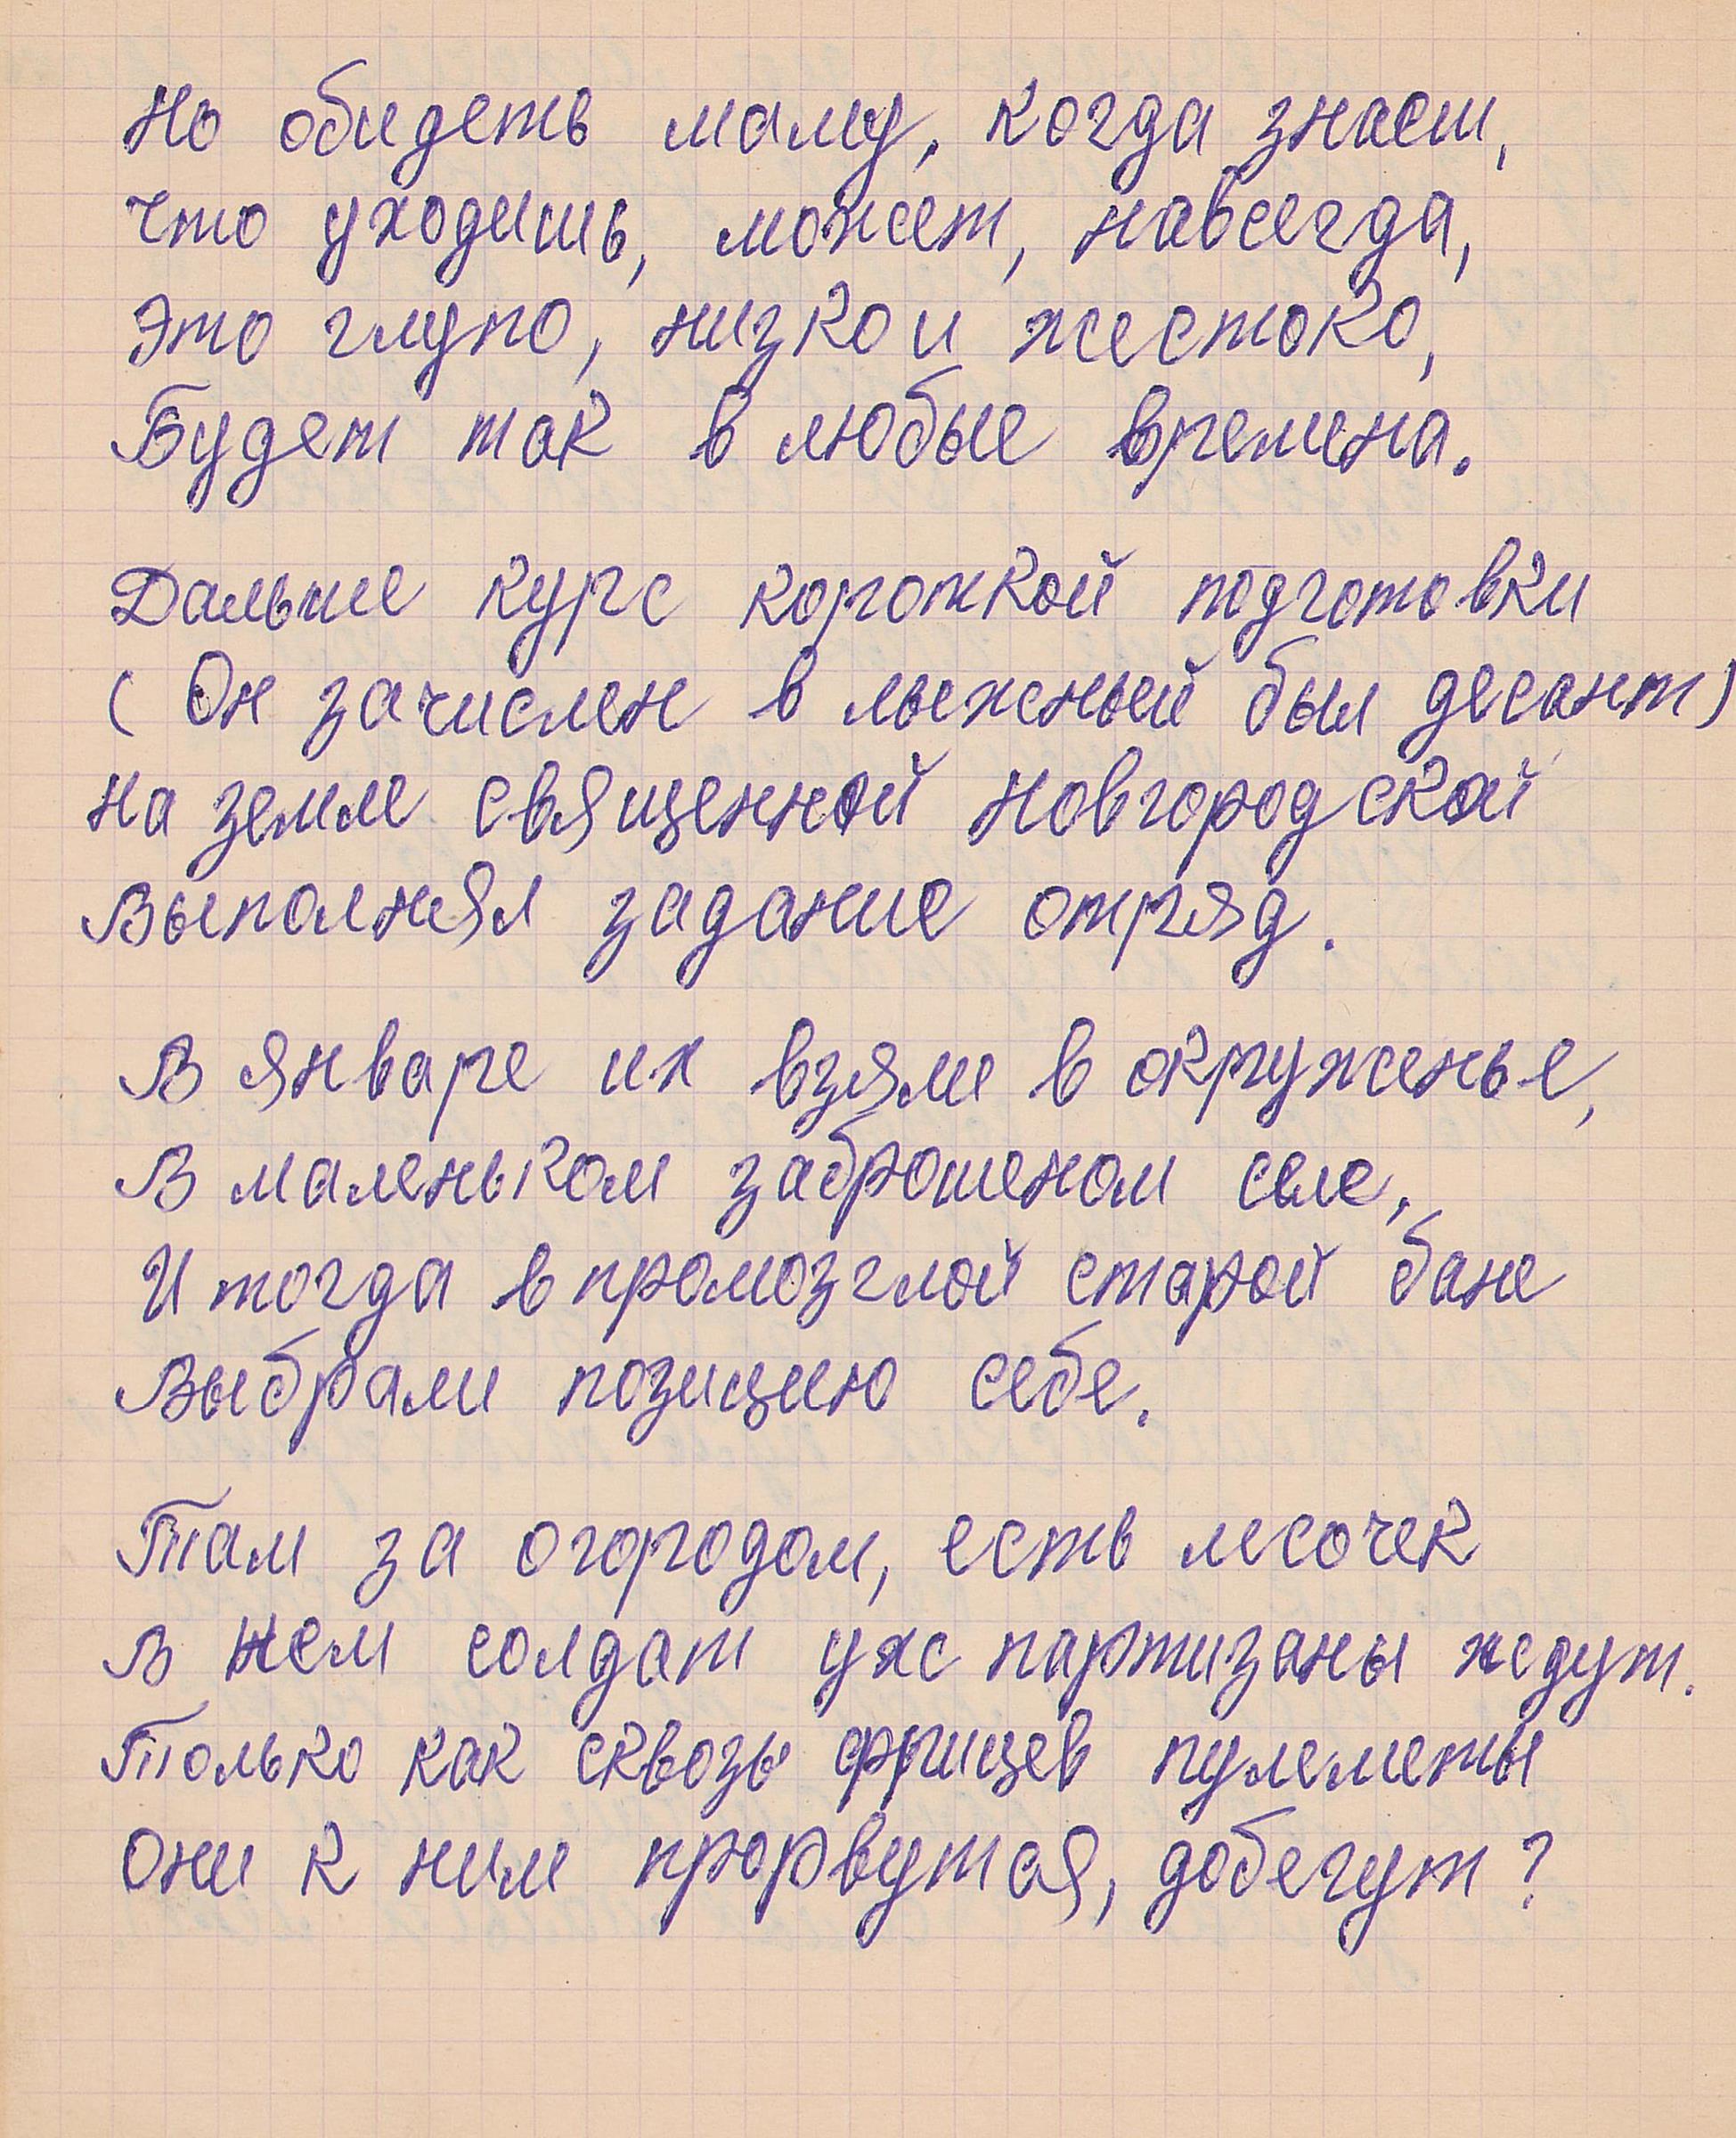 Но обидеть маму, когда знаеш,
что уходишь, может, навсегда,
Это глупо, низко и жестоко,
Будет так в любые времена.
Дальше курс короткой подготовки
(Он зачислен в лыжный был десант)
на земле священной новгородской
Выполнял задание отряд.
В январе их взяли в окруженье,
В маленьком заброшеном селе,
И тогда в промозглой старой бане
Выбрали позицию себе.
Там за огородом, есть лесочек
в нем солдат уже партизаны ждут.
Только как сквозь фрицев пулеметы
Они к ним прорвутся, добегут?